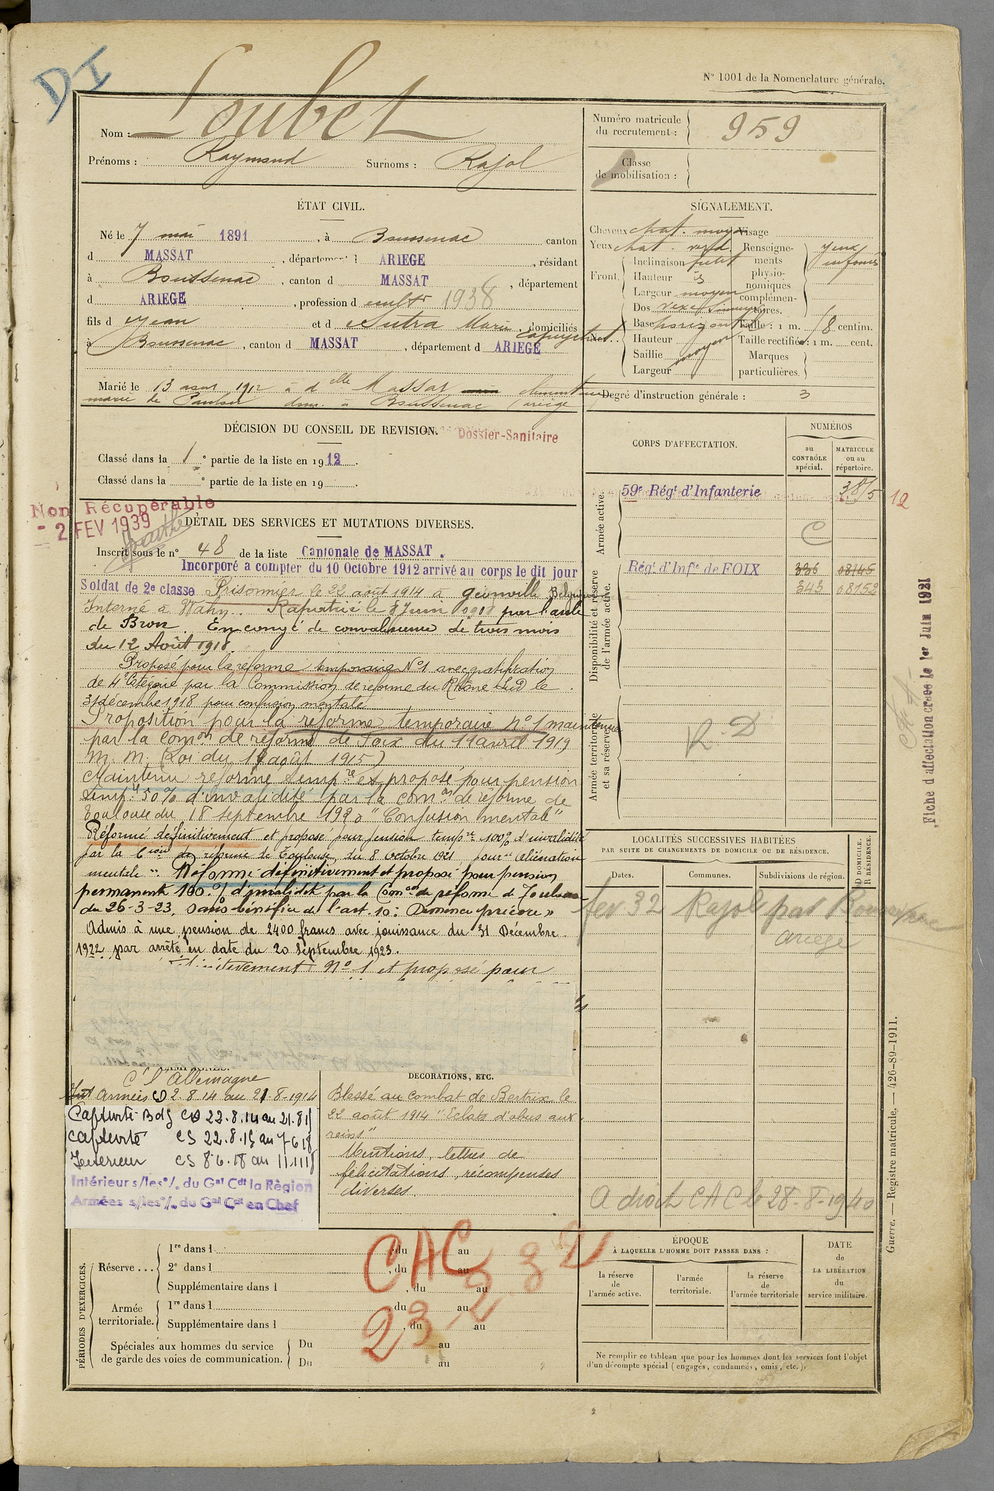 DI
N° 1001 de la Nomenclature générale.
Nom : Loubet
Prénoms : Raymond Surnoms : Rajol
Numéro matricule du recrutement : 959
Classe de mobilisation :
ÉTAT CIVIL.
Né le 7 mai 1891, à Boussenac canton
d MASSAT, département d ARIEGE, résidant
à Boussenac, canton d MASSAT, département
d ARIEGE, profession de cultr 1938
fils d Jean et d Sutra Marie, domiciliés
à Boussenac, canton d MASSAT, département d ARIEGE
Marié le 13 1912 à dlle Massat
dem. à Boussenac Ariège
SIGNALEMENT.
Cheveux chat. moy. Visage
Yeux chat. verd. Renseignements physionomiques complémentaires. yeux enfoncés
Front. Inclinaison petit
Hauteur
Largeur moyen
Dos
Base horizontal Taille : 1 m. 8 centim.
Hauteur Taille rectifiée : 1 m. cent.
Saillie moyen Marques
Largeur particulières.
Degré d'instruction générale : 3
DÉCISION DU CONSEIL DE REVISION.
Dossier-Sanitaire
Classé dans la 1e partie de la liste en 1912.
Classé dans la e partie de la liste en 19
Non Récupérable
- 2 FEV 1939
DÉTAIL DES SERVICES ET MUTATIONS DIVERSES.
Inscrit sous le n° 48 de la liste Cantonale de MASSAT.
Incorporé a compter du 10 Octobre 1912 arrivé au corps le dit jour
Soldat de 2e classe Prisonnier le 22 août 1914 à Belgique
Interné à Wahn. Rapatrié le 8 Juin 1918
de Bron En congé de convalescence de trois mois
du 12 Août 1918.
Proposé pour la réforme temporaire N°1 avec gratification
de 4e Catégorie par la Commission de réforme du Rhône Sud le
31 décembre 1918 pour confusion mentale
Proposition pour la réforme temporaire n° 1 maintenue
par la Comon de réforme de Foix du 19 avril 1919
M. M. (Loi du 19 août 1915)
Maintenu réformé temp.re et proposé pour pension
temp.re 50% d'invalidité par la comon de réforme de
Toulouse du 18 septembre 1920 "Confusion mentale"
Réformé définitivement et proposé pour pension tempre 100% d'invalidité
par la Comon de réforme de Toulouse du 8 octobre 1921 pour aliénation
mentale Réformé définitivement et proposé pour pension
permanente 100% d'invalidité par la Comon de réforme de Toulouse
du 26-3-23. Sans bénéfice de l'art. 10 : Démence précoce »
Admis à une pension de 2400 francs avec jouissance du 31 Décembre
1922 par arrêté en date du 20 Septembre 1923.
N° 1 et proposé pour
Cre l'Allemagne
Aux Armées CD 2.8.14 au 21.8.1914
Captivité Bdf CD 22.8.14 au 21.8.15
captivité CS 22.8.15 au 7 6 18
Intérieur CS 8 6.18 au 11 11 18
Intérieur s/les °/. du Gal Cdt la Région
Armées s/les °/. du Gal Cdt en Chef
DÉCORATIONS, ETC.
Blessé au combat de Bertrix le
22 août 1914 "Eclats d'obus aux
reins"
Mentions, lettres de
félicitations, récompenses
diverses.
CORPS D'AFFECTATION.
NUMÉROS
au CONTRÔLE spécial.
MATRICULE ou au répertoire.
Armée active.
59e Régt d'Infanterie 3815 12
C
Disponibilité et réserve de l'armée active.
Régt d'Infie de FOIX
343 08152
Armée territoriale et sa réserve.
R.D
Fiche d'affectation créée le 1er Juin 1921
LOCALITÉS SUCCESSIVES HABITÉES
PAR SUITE DE CHANGEMENTS DE DOMICILE OU DE RÉSIDENCE.
D DOMICILE. R RÉSIDENCE.
Dates. Communes. Subdivisions de région.
fev 32 Rajol par Boussenac
Ariège
A droit CAC le 28-8-1940
Guerre. — Registre matricule. — 426-89-1911.
PÉRIODES D'EXERCICES.
Réserve... 1re dans l , du au
2e dans l , du au
Supplémentaire dans l , du au
Armée territoriale. 1re dans l , du au
Supplémentaire dans l , du au
Spéciales aux hommes du service de garde des voies de communication. Du au
Du au
CAC
23-2-32
ÉPOQUE
À LAQUELLE L'HOMME DOIT PASSER DANS :
la réserve de l'armée active.
l'armée territoriale.
la réserve de l'armée territoriale
DATE DE LA LIBÉRATION du service militaire.
Ne remplir ce tableau que pour les hommes dont les services font l'objet
d'un décompte spécial (engagés, condamnés, omis, etc.).
2